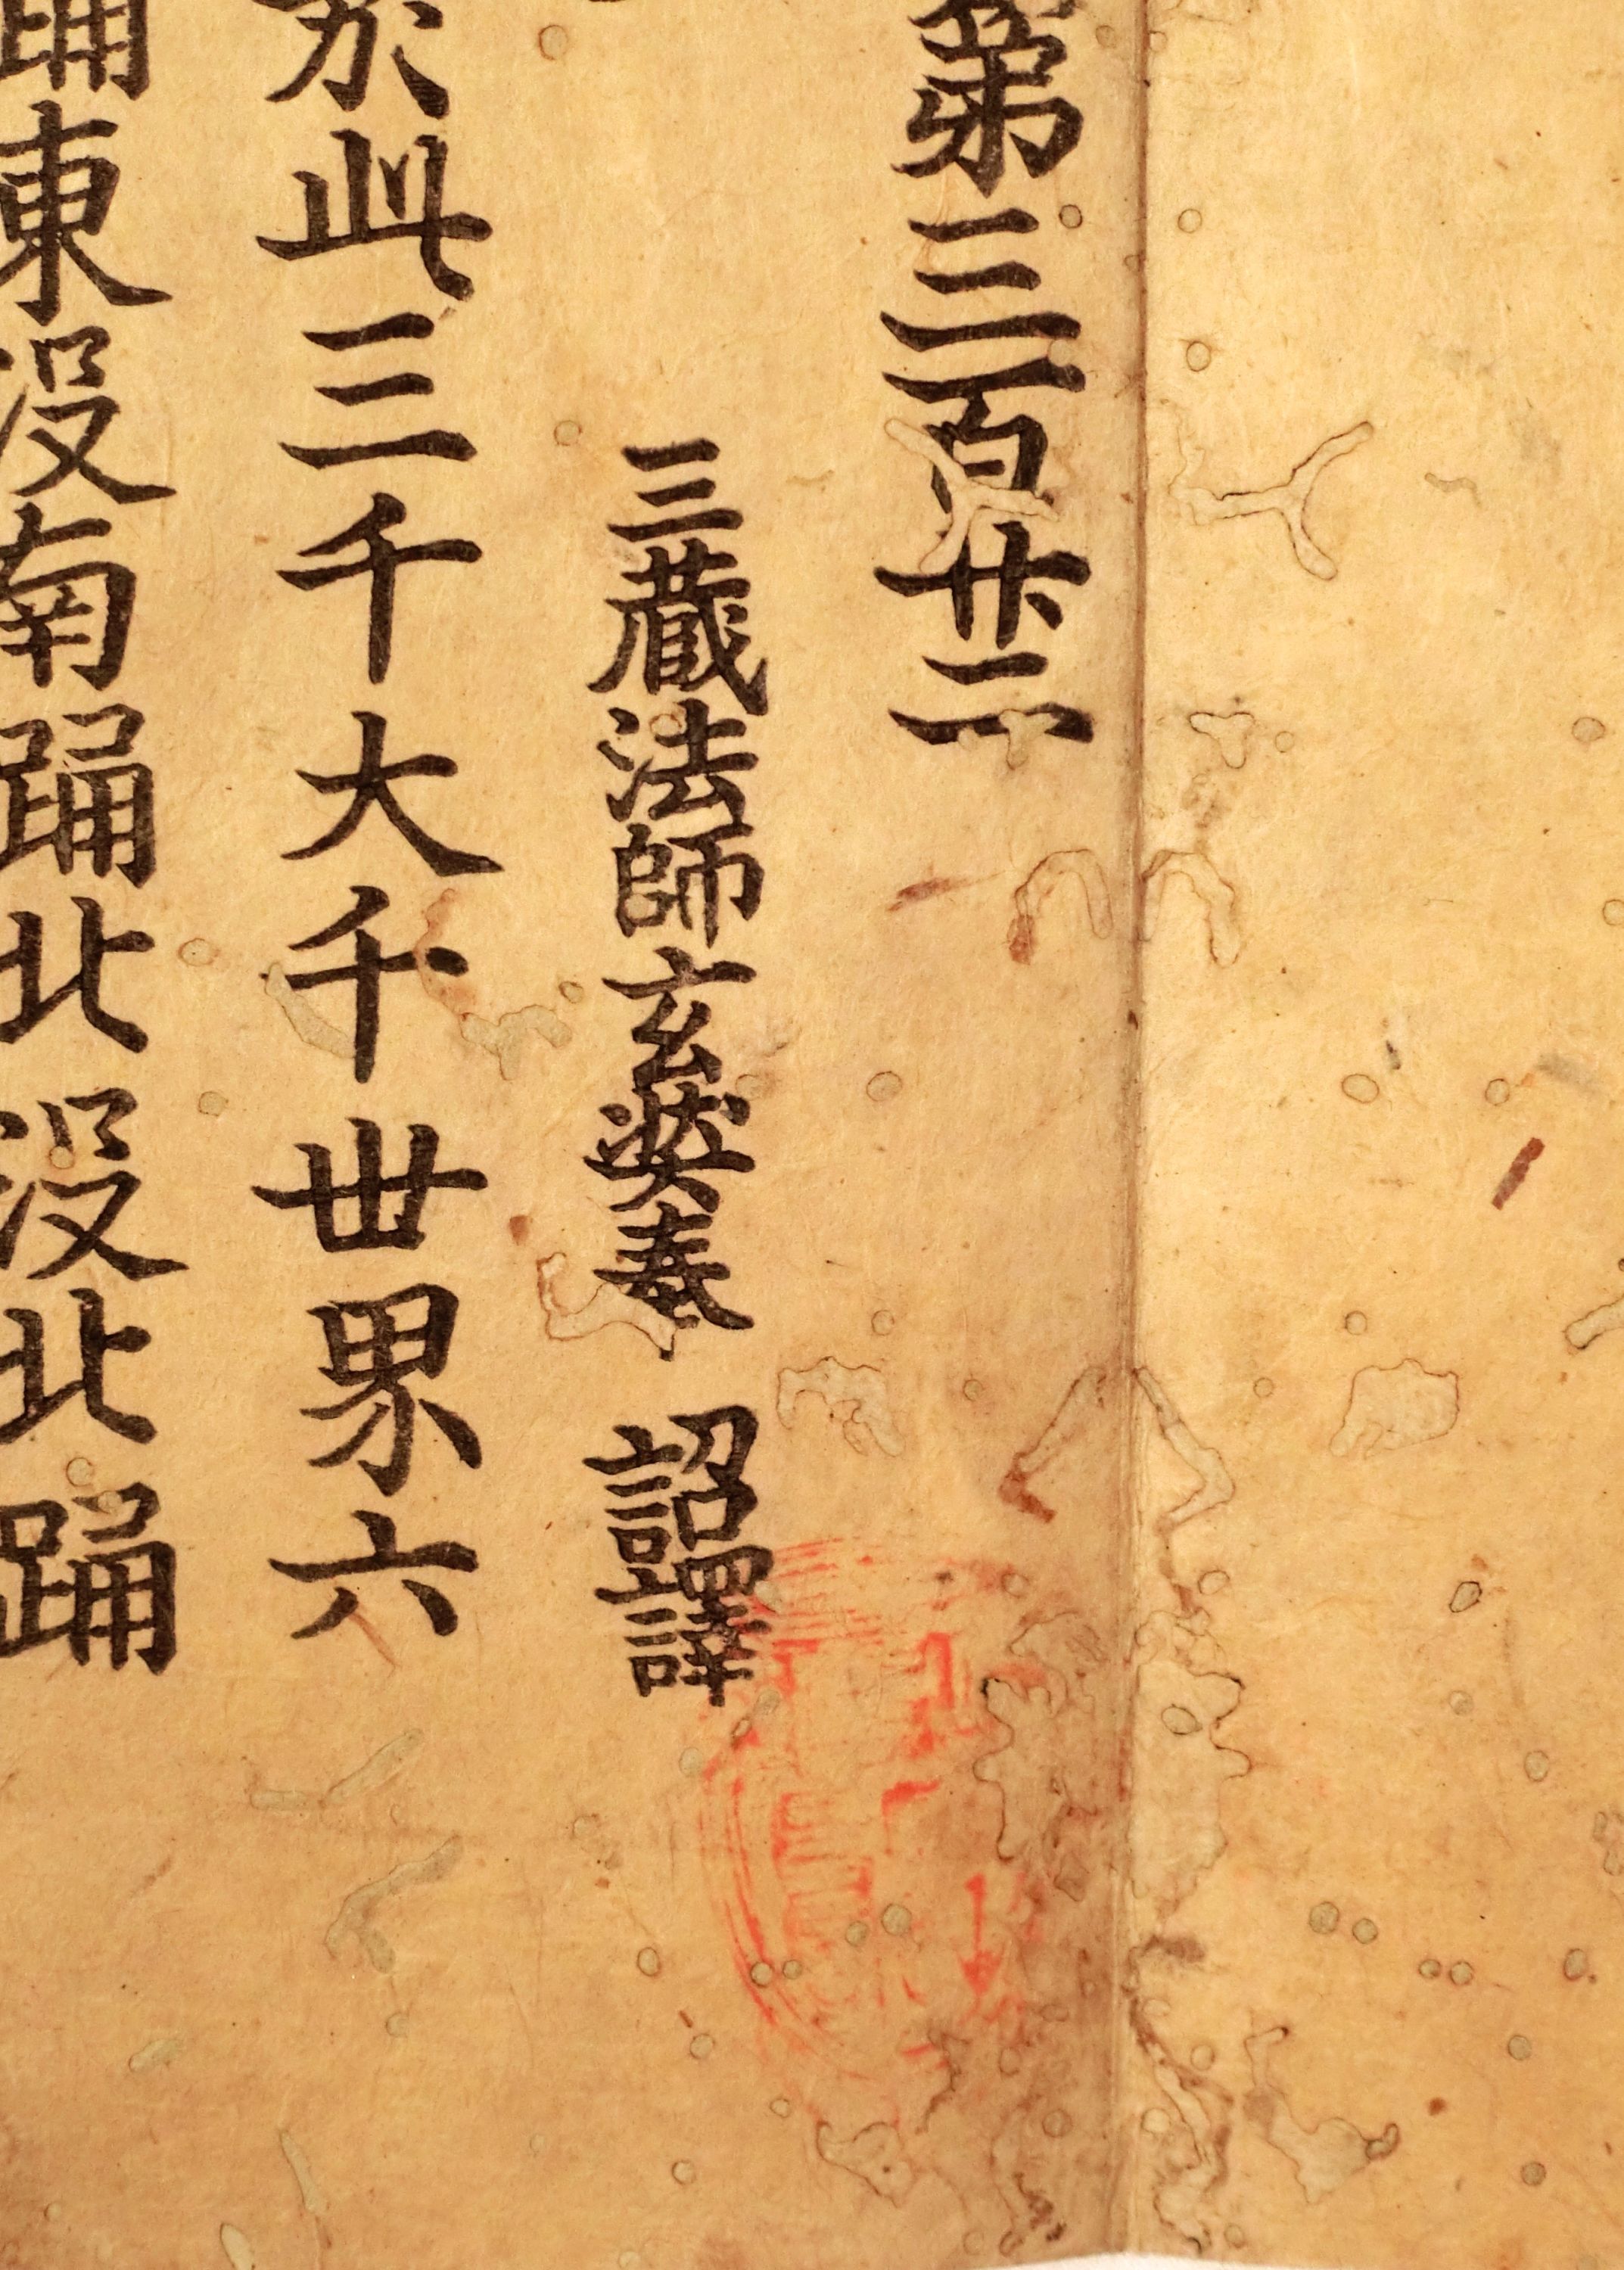 第三百廿二
三藏法師玄奘奉　詔譯
於此三千大千世界六
踊東没南踊北没北踊